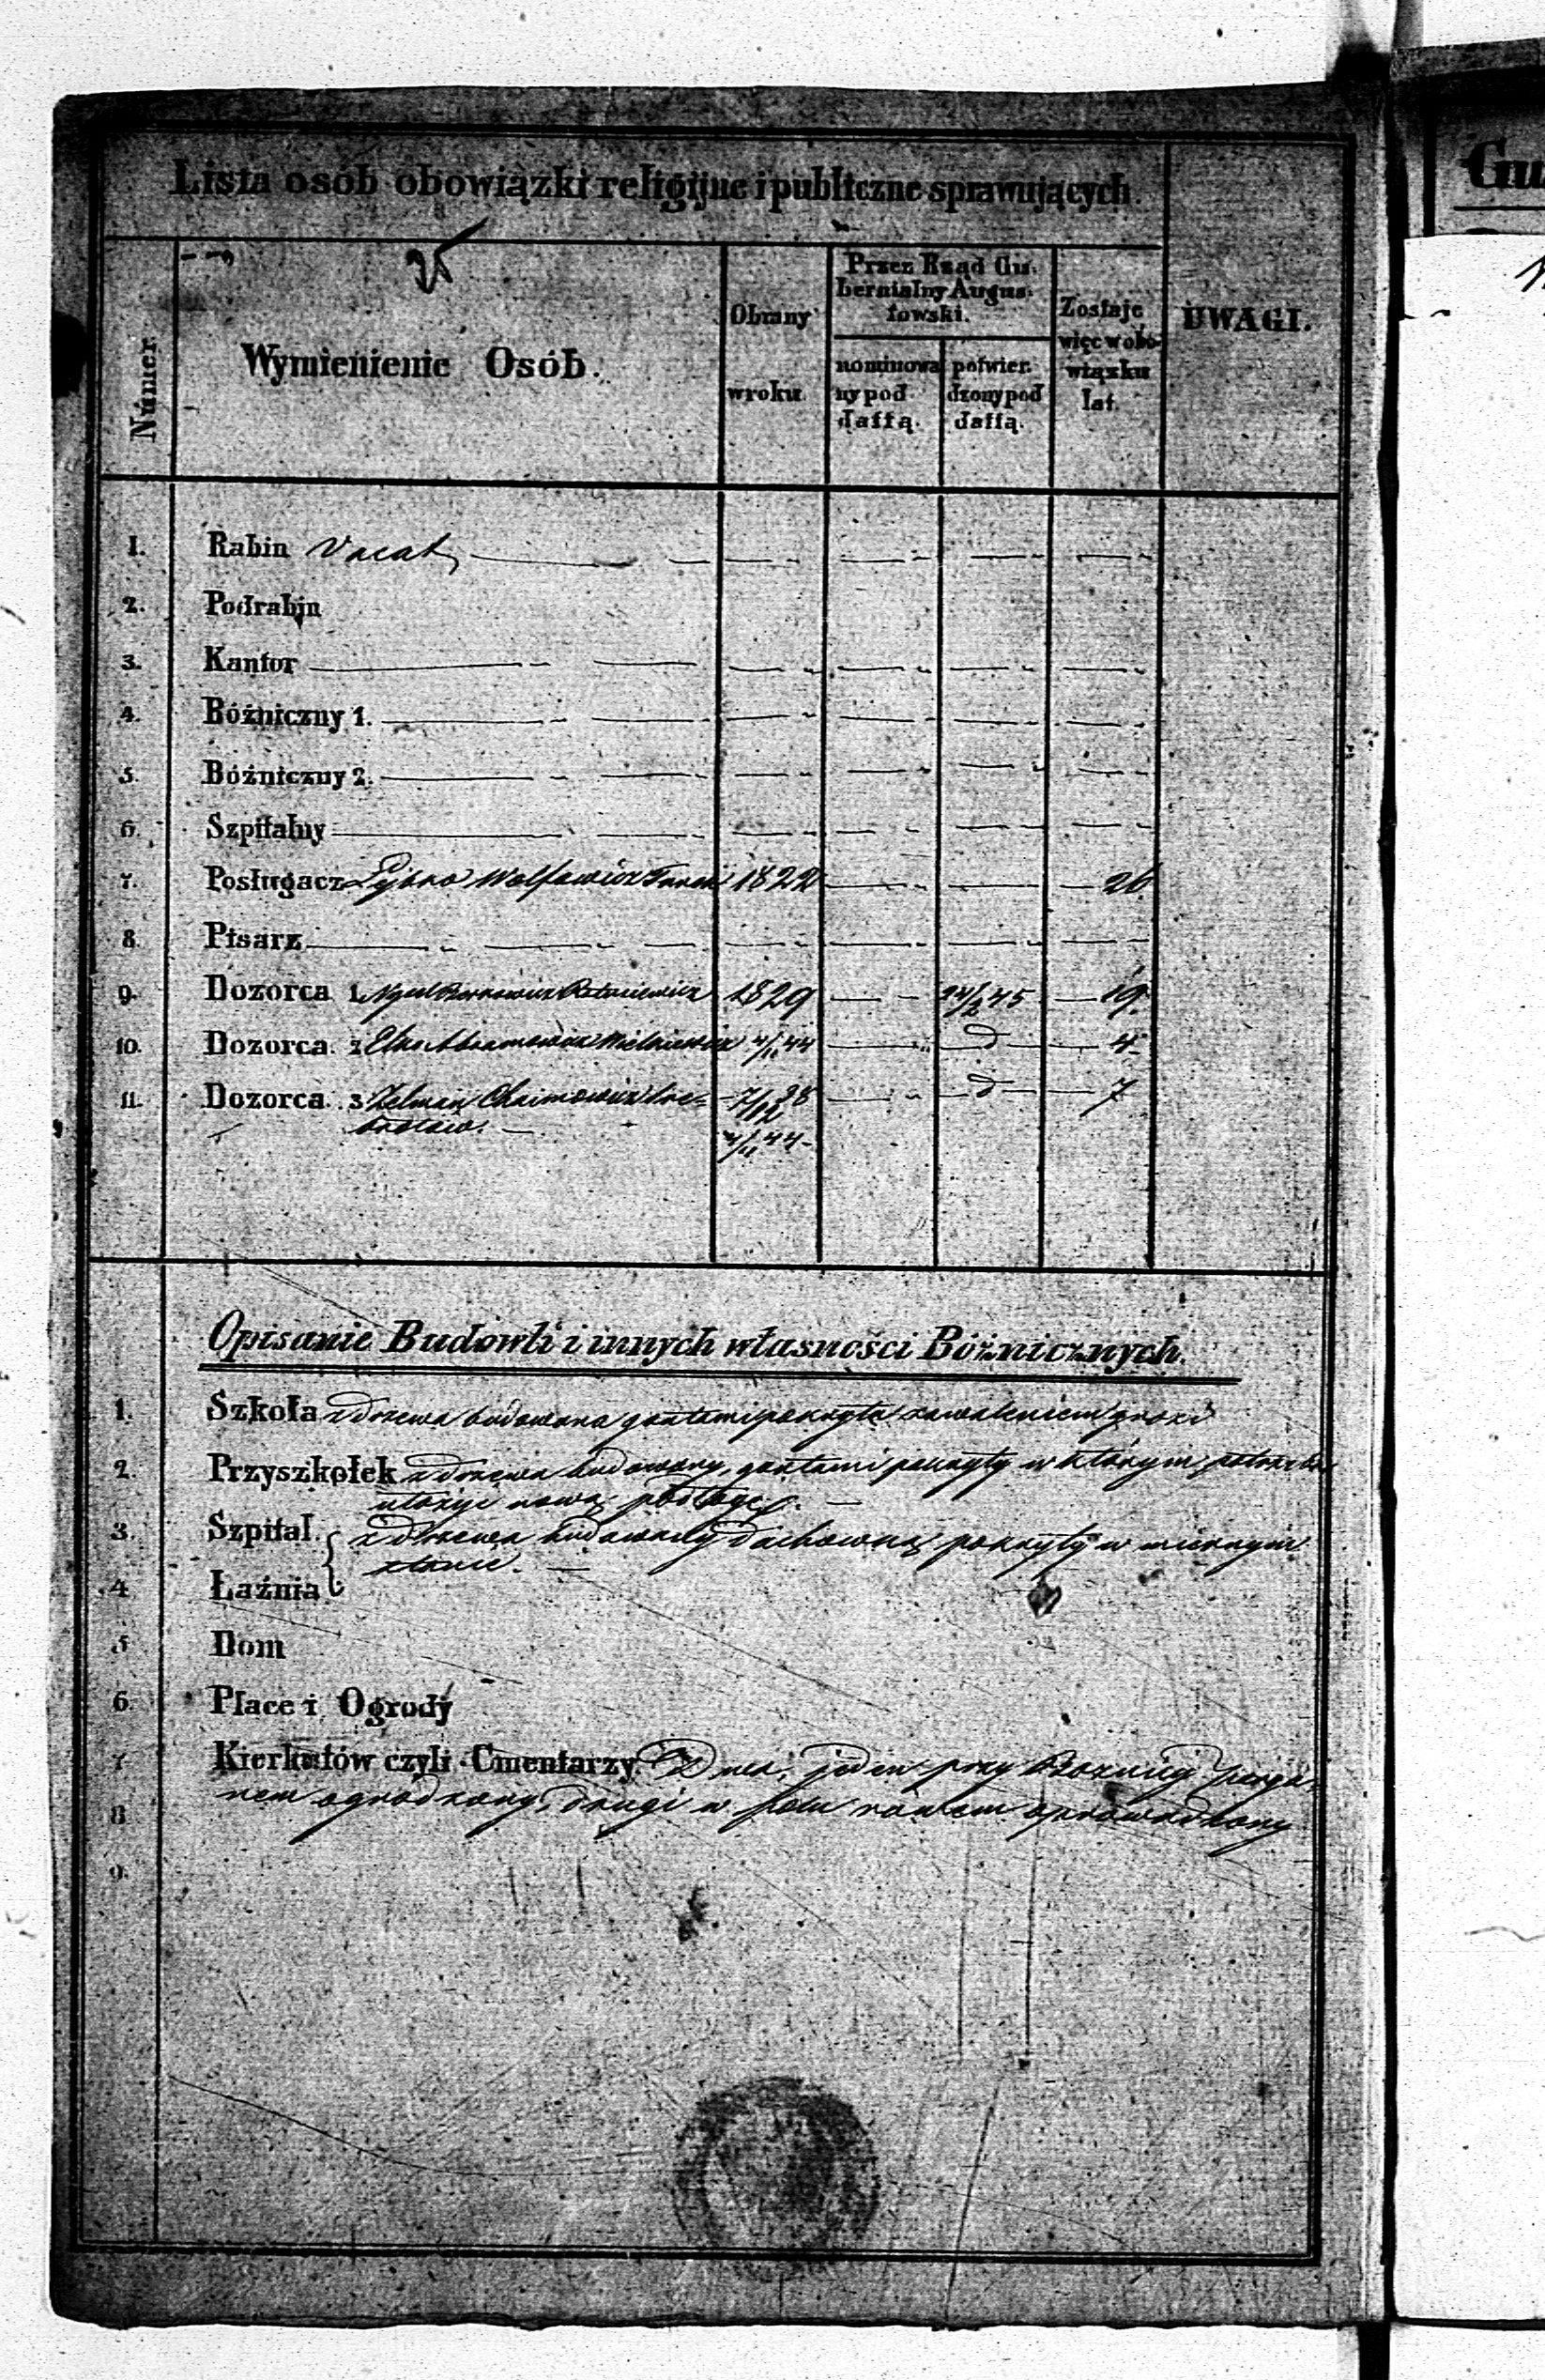 Lista osób obowiązki religijne i publiczne sprawujących.
Gu
95
Numer
Wymienienie Osób.
Obrany w roku.
Przez Rząd Gubernialny Augustowski.
nominowany pod dattą.
potwierdzony pod dattą.
Zostaje więc w obowiązku lat.
UWAGI.
1. Rabin Vacat
2. Podrabin
3. Kantor
4. Bóżniczny 1.
5. Bóżniczny 2.
6. Szpitalny
7. Posługacz Lejbko Wolfowicz 1822 26
8. Pisarz
9. Dozorca 1. 1829 45 19.
10. Dozorca 2 Abramowicz 4/11 44 d 4
11. Dozorca 3 Zelman Chaimowicz 7/12 38 d 7
4/11 44
Opisanie Budowli i innych własności Bóżnicznych.
1. Szkoła z drzewa budowana gontami pokryta zawaleniem grozi
2. Przyszkołek z drzewa budowany, gontami pokryty w którym potrzeba
ułożyć nową podłogę.
3. Szpital. z drzewa budowany dachowką pokryty w miernym
stanie.
4 Łaźnia
5 Dom
6. Place i Ogrody
7 Kierkutów czyli Cmentarzy. Dwa, jeden przy Bożnicy
ogrodzony, drugi w polu rowem oprowadzony
8
9.